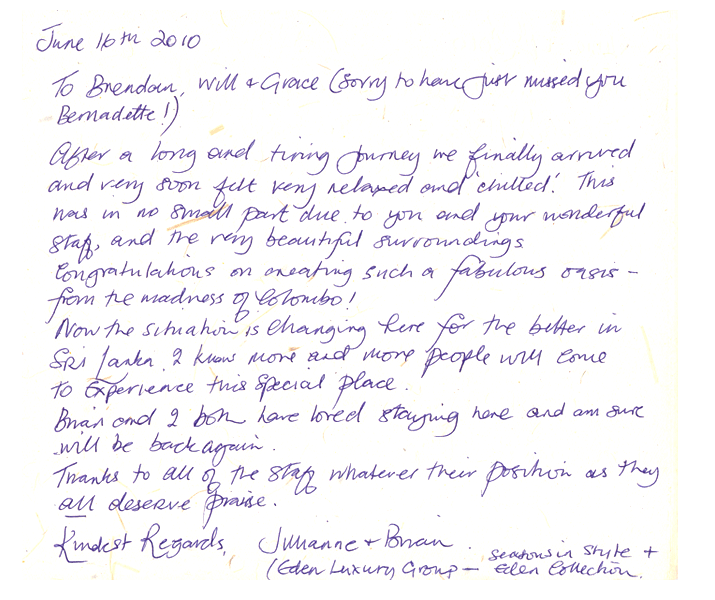 June 16th 2010
To Brendan, Will + Grace (Sorry to have just missed you
Bernadette!)
After a long and tiring journey we finally arrived
and very soon felt very relaxed and 'chilled'. This
was in no small part due to you and your wonderful
staff, and the very beautiful surroundings
Congratulations on creating such a fabulous oasis –
from the madness of Colombo!
Now the situation is changing here for the better in
Sri Lanka I know more and more people will come
to experience this special place.
Brian and I both have loved staying here and am sure
will be back again.
Thanks to all of the staff whatever their position as they
all deserve praise.
Kindest Regards, Julianne + Brian
(Eden Luxury Group – Seasons in Style +
Eden Collection.